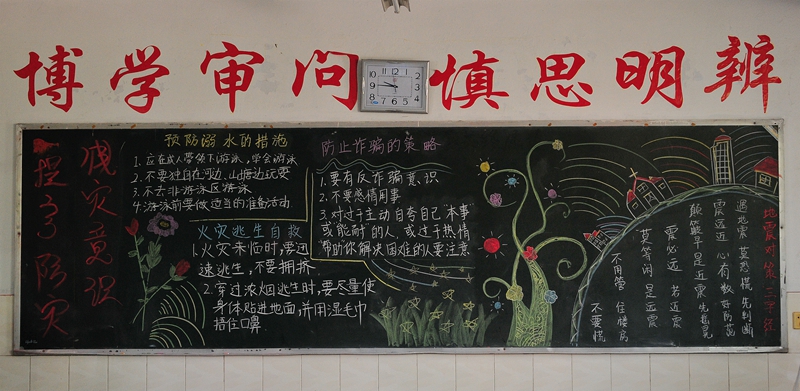 博学审问慎思明辨
浅灾意识
提高防灾
预防溺水的措施
1.应在成人带领下游泳,学会游泳
2.不要独自在河边、山塘边玩耍
3.不去非游泳区游泳
4.游泳前要做适当的准备活动
火灾逃生自救
1.火灾来临时,要迅
速逃生,不要拥挤
2.穿过浓烟逃生时,要尽量使
身体贴进地面,并用湿毛巾
捂住口鼻
防止诈骗的策略
1.要有反诈骗意识
2.不要感情用事
3.对过于主动自夸自己"本事"
或能耐的人,或过于热情
帮助你解决困难的人要注意
地震对策三字经
遇地震 莫恐慌 先判断
震远近 心有数 好防范
颠簸早 是近震 先摇晃
震必远 若近震
莫等闲 是远震
不用管 住楼房
不要慌